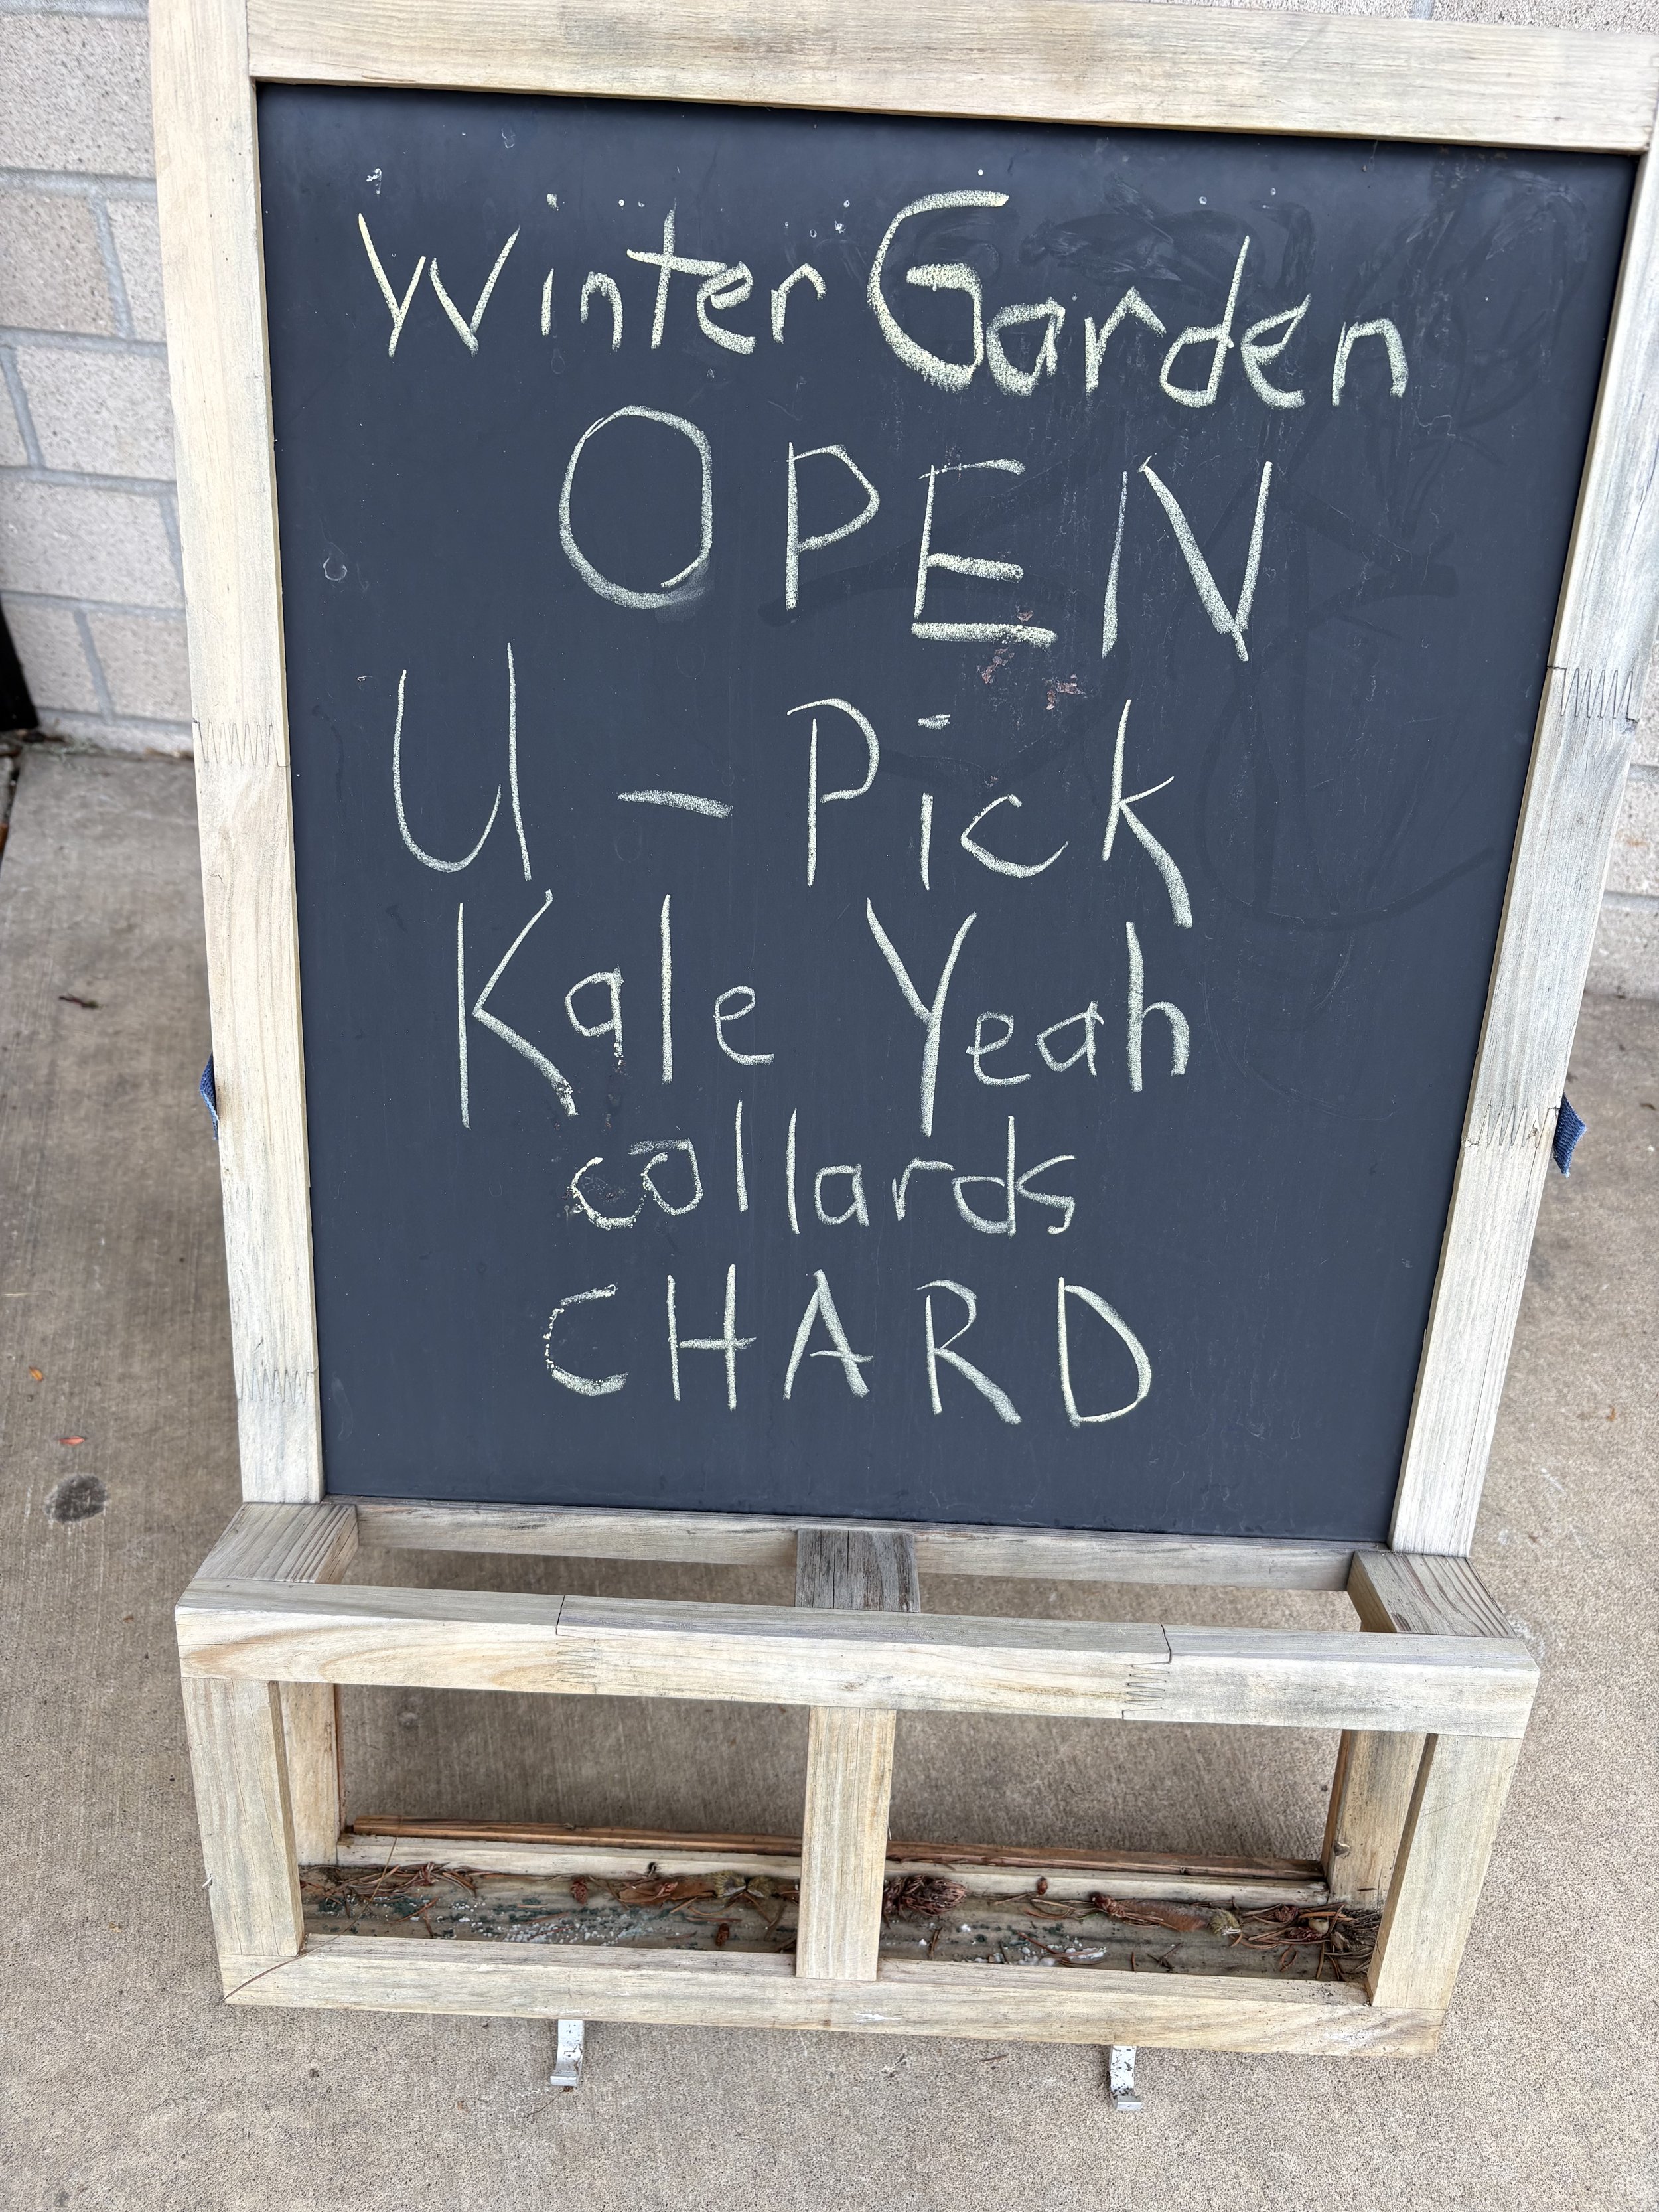 Winter Garden
OPEN
U - Pick
Kale Yeah
collards
CHARD